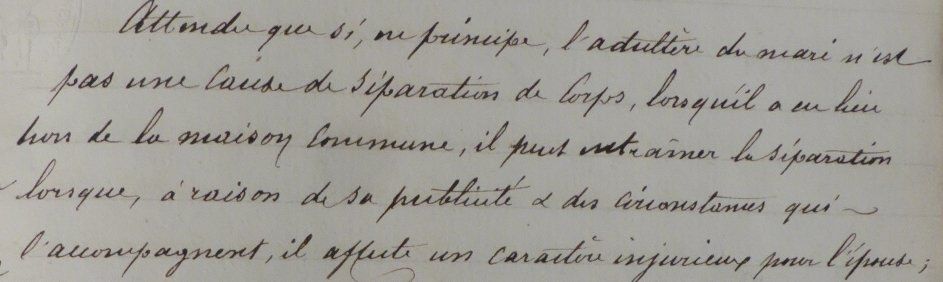 Attendu que si, en principe, l'adultère du mari n'est
pas une cause de séparation de corps, lorsqu'il a eu lieu
hors de la maison commune, il peut entraîner la séparation
lorsque, à raison de sa publicité & des circonstances qui
l'accompagnent, il affecte un caractère injurieux pour l'épouse ;